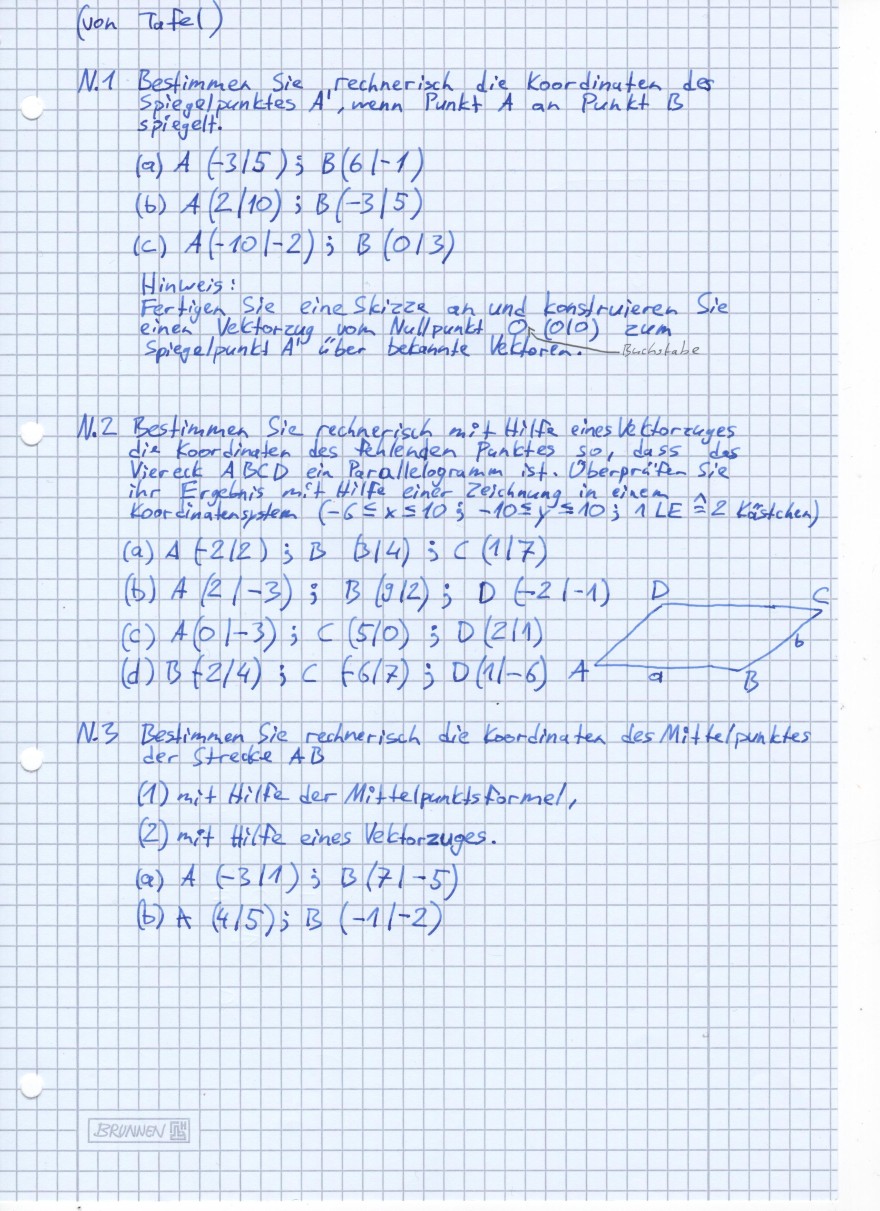 (von Tafel)
N.1 Bestimmen Sie rechnerisch die Koordinaten des
Spiegelpunktes A', wenn Punkt A an Punkt B
spiegelt.
(a) A (-3/5) ; B(6/-1)
(b) A(2/10) ; B(-3/5)
(c) A(-10/-2) ; B (0/3)
Hinweis:
Fertigen Sie eine Skizze an und konstruieren Sie
einen Vektorzug vom Nullpunkt O (0/0) zum
Spiegelpunkt A' über bekannte Vektoren.
Buchstabe
N.2 Bestimmen Sie rechnerisch mit Hilfe eines Vektorzuges
die Koordinaten des fehlenden Punktes so, dass das
Viereck ABCD ein Parallelogramm ist. Überprüfen Sie
ihr Ergebnis mit Hilfe einer Zeichnung in einem
Koordinatensystem (-6 ≤ x ≤ 10 ; -10 ≤ y ≤ 10 ; 1 LE ≙ 2 Kästchen)
(a) A (-2/2) ; B (3/4) ; C (1/7)
(b) A (2/-3) ; B (9/2) ; D (-2/-1)
(c) A(0/-3) ; C (5/0) ; D(2/1)
(d) B (-2/4) ; C (-6/7) ; D(1/-6)
D C
b
A a B
N.3 Bestimmen Sie rechnerisch die Koordinaten des Mittelpunktes
der Strecke AB
(1) mit Hilfe der Mittelpunktsformel,
(2) mit Hilfe eines Vektorzuges.
(a) A (-3/1) ; B(7/-5)
(b) A (4/5) ; B (-1/-2)
BRUNNEN